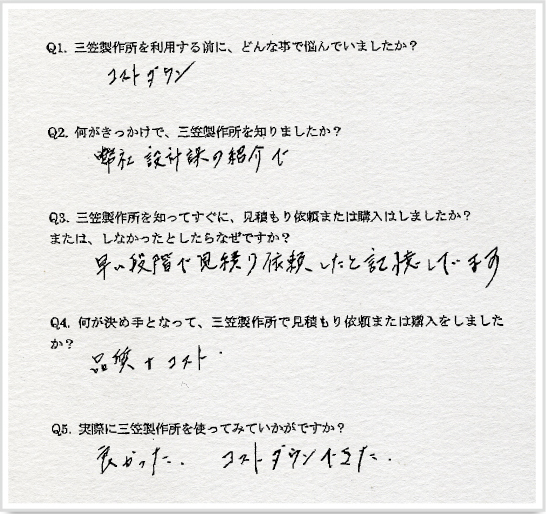 Q1. 三笠製作所を利用する前に、どんな事で悩んでいましたか？
コストダウン
Q2. 何がきっかけで、三笠製作所を知りましたか？
弊社 設計課の紹介で
Q3. 三笠製作所を知ってすぐに、見積もり依頼または購入はしましたか？
または、しなかったとしたらなぜですか？
早い段階で見積り依頼したと記憶しています
Q4. 何が決め手となって、三笠製作所で見積もり依頼または購入をしました
か？
品質+コスト.
Q5. 実際に三笠製作所を使ってみていかがですか？
良かった. コストダウンできた.